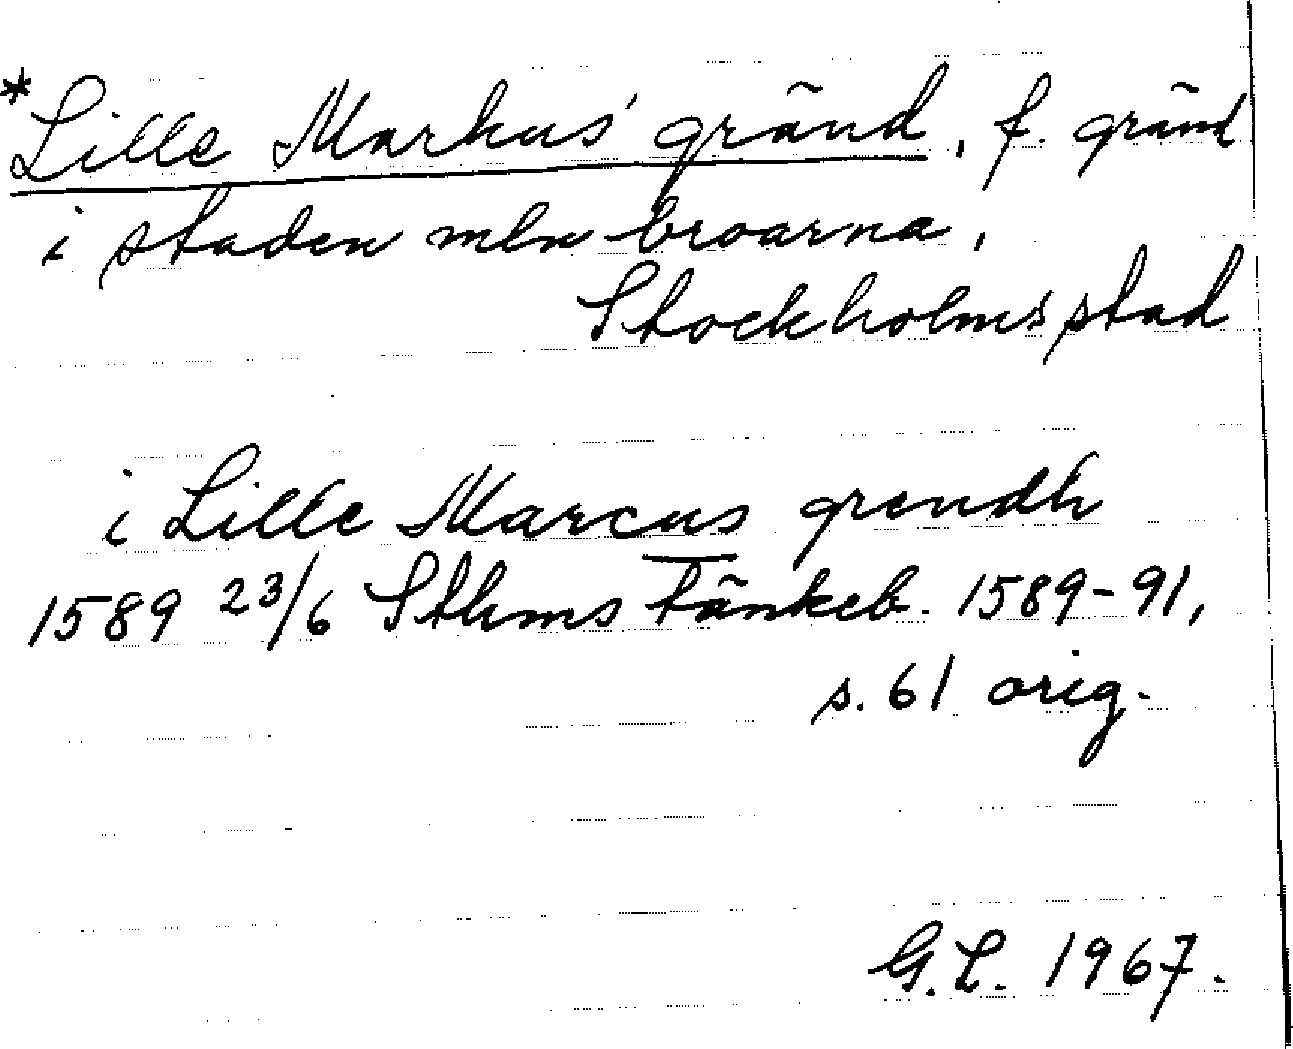 *Lille Markus' gränd, f. gränd
i staden mln broarna,
Stockholms stad
i Lille Marcus grendh
1589 23/6 Sthms tänkeb. 1589-91,
s. 61 orig.
G.L. 1967.